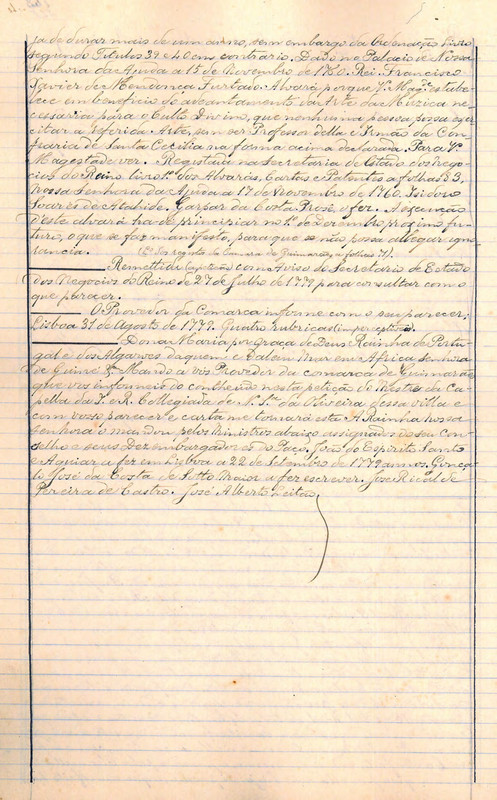 ja de durar mais de um anno, sem embargo da Ordenação livro
segundo Titulos 39 e 40 em contrario. Dado no Palacio de Nossa
Senhora da Ajuda a 15 de Novembro de 1760. Rei. Francisco
Xavier de Mendonça Furtado. Alvará porque V. Magde estabe-
lece em beneficio do adiantamento da Arte da Muzica ne-
cessaria para o Culto Divino, que nenhuma pessoa possa exer-
citar a referida Arte, sem ser Professor della e Irmão da Con-
fraria de Santa Cecilia na forma acima declarada. Para V.
Magestade ver. Registado na Secretaria de Estado dos Nego-
cios do Reino livro 1º dos Alvarás, Cartas e Patentes a folhas 53,
Nossa Senhora da Ajuda a 17 de Novembro de 1760. Isidoro
Soares de Ataide. Gaspar da Costa Posse, o fez. A execução
d'este alvará ha de principiar no 1º de Dezembro proximo fu-
turo, o que se faz manifesto, para que se não possa allegar igno-
rancia. (Lº do registo da Camara de Guimarães a folhas 71).
Remettida com Aviso do Secretario de Estado
dos Negocios do Reino de 27 de Julho de 1779 para consultar com o
que parecer.
O Provedor da Comarca informe com o seu parecer.
Lisboa 31 de Agosto de 1779. Quatro rubricas
Dona Maria por Graça de Deus Rainha de Portu-
gal e dos Algarves daquem e dalem Mar em Africa senhora
de Guiné &. Mando a vós Provedor da comarca de Guimarães
que vos informeis do contheudo nesta petição do Mestre da Ca-
pella da I. e R. Collegiada de N. Sra da Oliveira dessa villa e
com vosso parecer e carta me tornará esta. A Rainha nossa
senhora o mandou pelos Ministros abaixo assignados do seu Con-
selho e seus Dezembargadores do Paço. João do Espirito Santo
e Aguiar a fez em Lisboa a 22 de Setembro de 1779 annos. Gonça-
lo José da Costa de Sotto Maior a fez escrever. José Ricalde
Pereira de Castro. José Alberto Leitão.